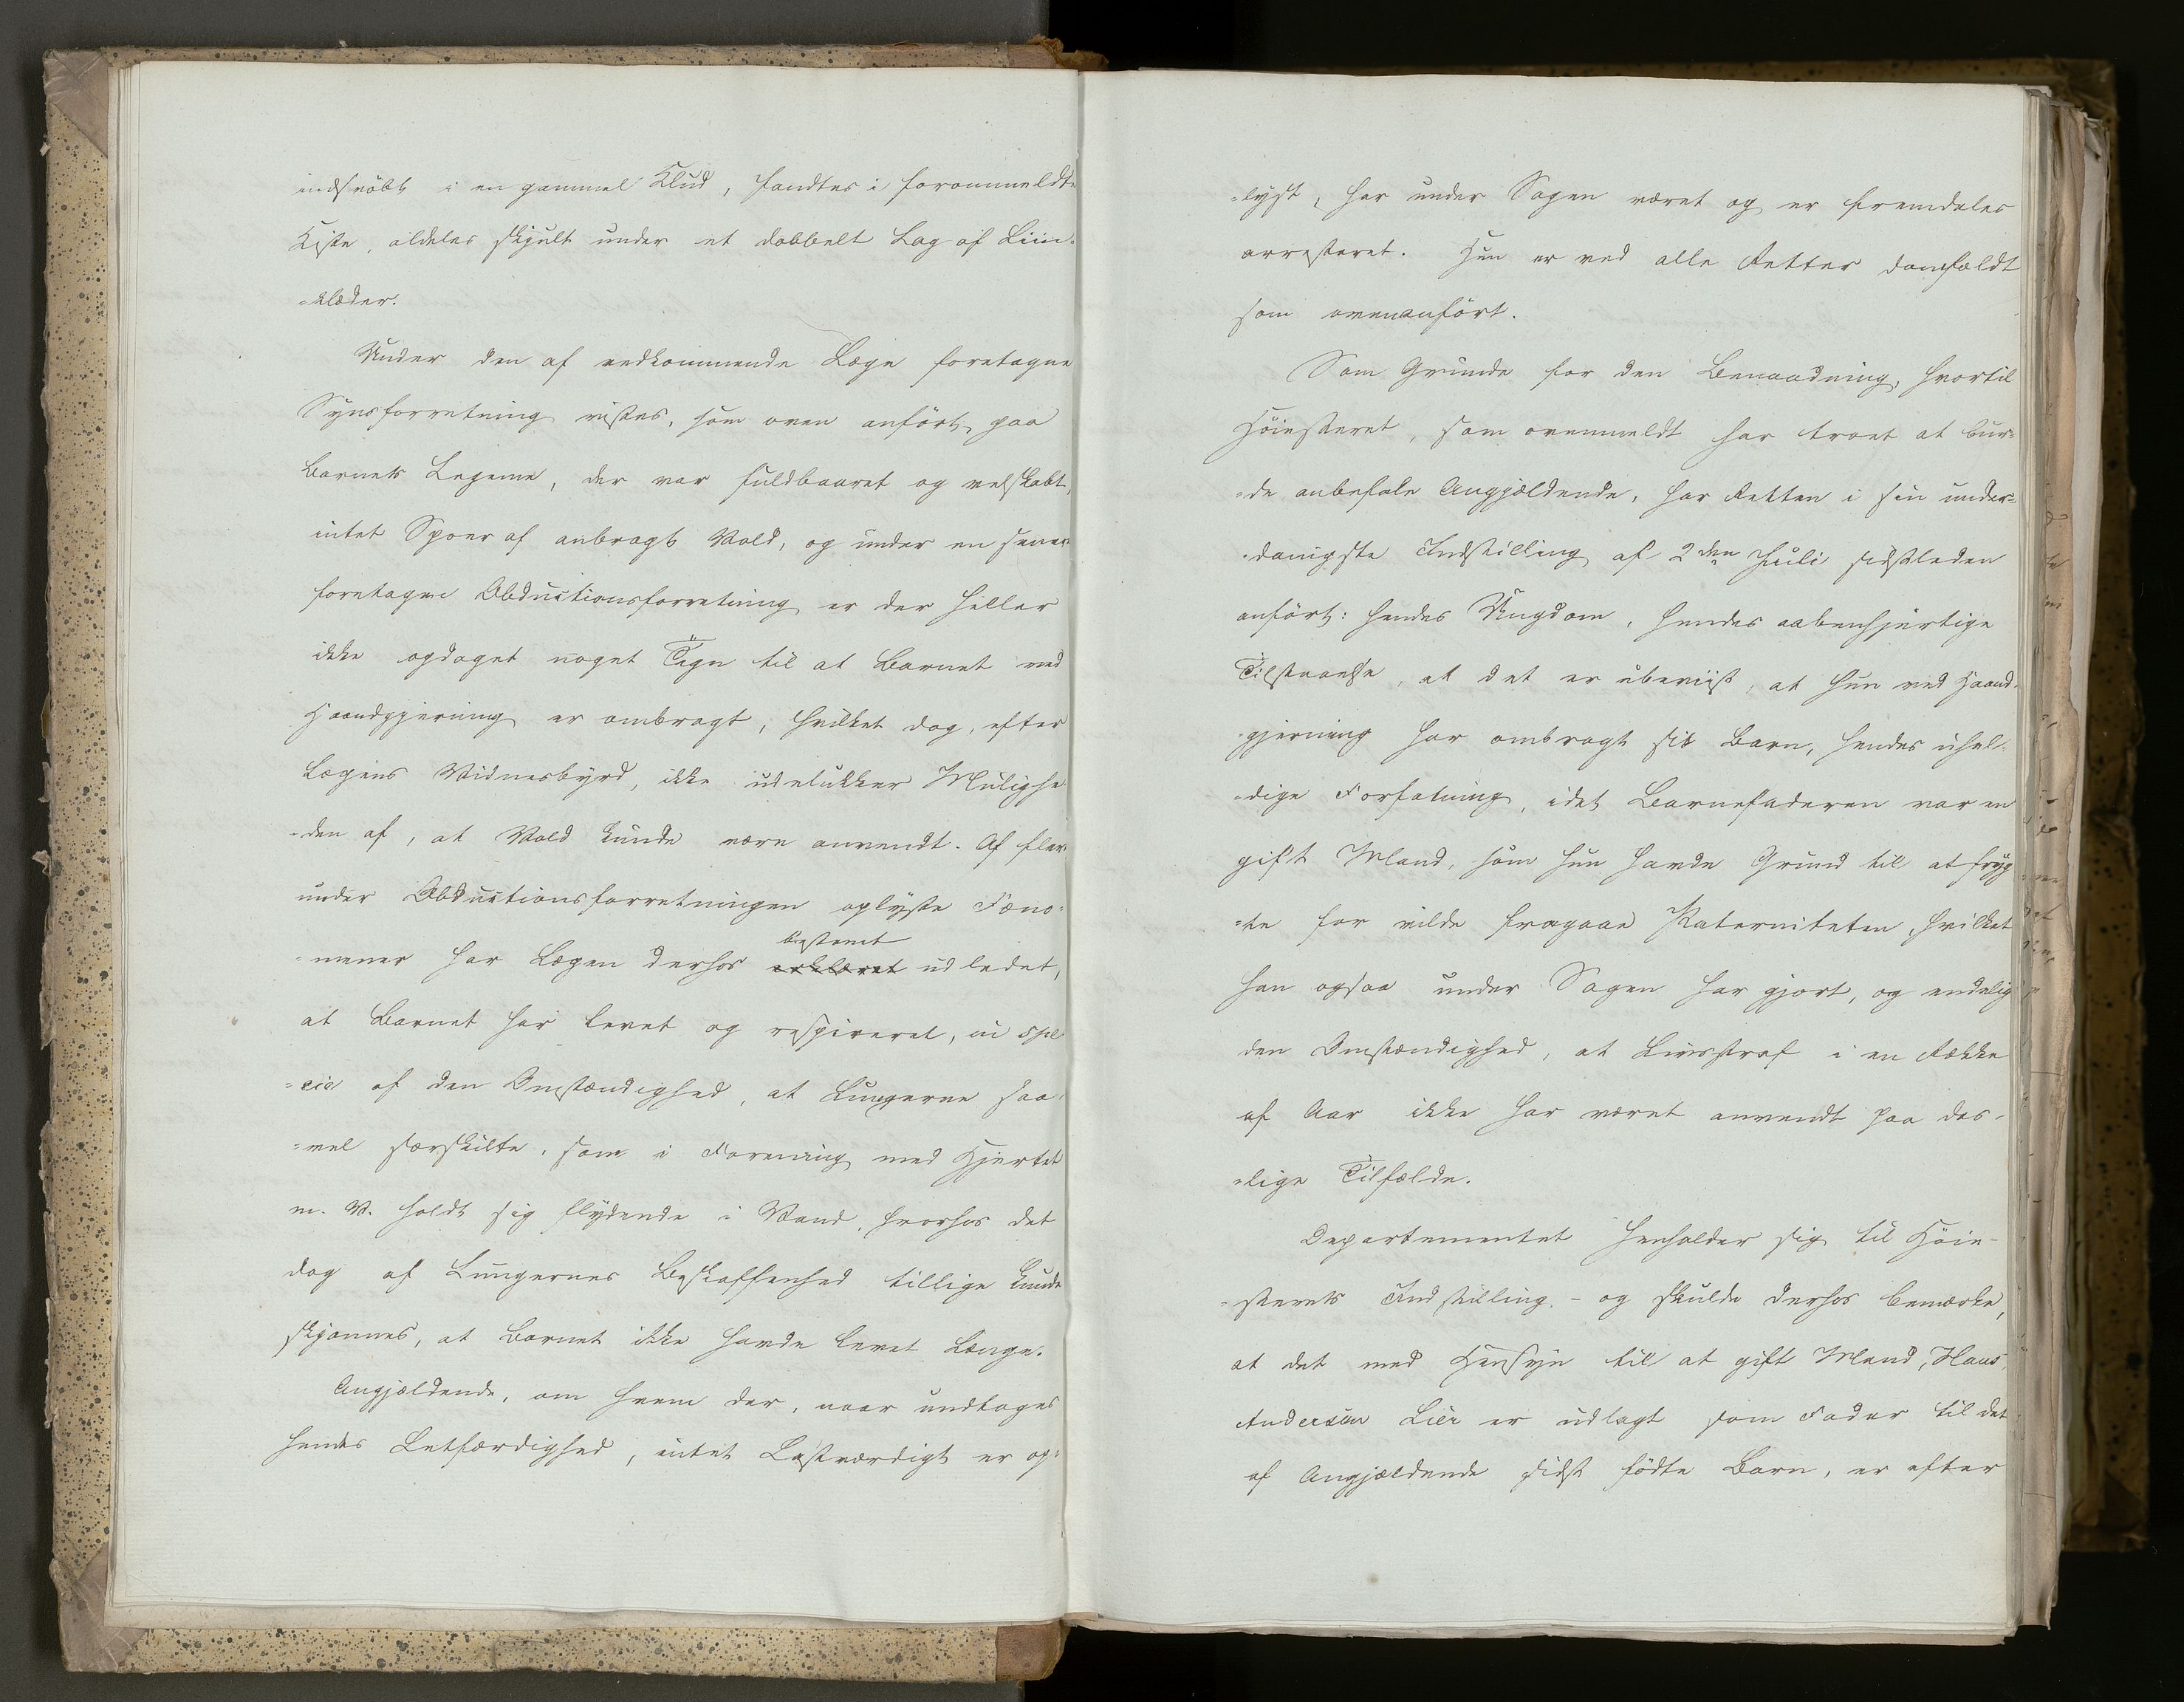 indsvöbt i en gammel Klud, fandtes i forommeldte
Kiste, aldeles skjult under et dobbelt Lag af Liin-
-klæder.
Under den af vedkommende Læge foretagne
Synsforretning vistes, som oven anfört, paa
Barnets Legeme, der var fuldbaaret og velskabt,
intet Spoer af anbragt Vold, og under en senere
foretagen Obductionsforretning er der heller
ikke opdaget noget Tegn til at Barnet ved
Haandgjerning er ombragt, hvilket dog, efter
Lægens Vidnesbyrd, ikke udelukker Mulighe-
-den af, at Vold kunde være anvendt. Af flere
under Obductionsforretningen oplyste Fæno-
-mener har Lægen derhos bestemt
erklæret udledet,
at Barnet har levet og respireret, in spe-
-cie af den Omstændighed, at Lungerne saa-
-vel særskilte, som i Forening med Hjertet
m. V. holdt sig flydende i Vand, hvorhos det
dog af Lungernes Beskaffenhed tillige kunde
skjønnes, at Barnet ikke havde levet længe.
Angjældende, om hvem der, naar undtages
hendes Letfærdighed, intet Lastværdigt er op-
-lyst, har under Sagen været og er fremdeles
arresteret. Hun er ved alle Retter domfældt
som ovenanfört.
Som Grunde for den Benaadning, hvortil
Höiesteret, som ovenmeldt har troet at bur-
-de anbefale Angjældende, har Retten i sin under-
-danigste Indstilling af 2den Juli sidstleden
anfört: hendes Ungdom, hendes aabenhjertige
Tilstaaelse, at det er ubeviist, at hun ved Haand-
-gjerning har ombragt sit Barn, hendes uhel-
-dige Forfatning, idet Barnefaderen var en
gift Mand, som hun havde Grund til at fryg-
-te for vilde fragaae Paterniteten, hvilket
han ogsaa under Sagen har gjort, og endelig
den Omstændighed, at Livsstraf i en Række
af Aar ikke har været anvendt paa des-
-lige Tilfælde.
Departementet henholder sig til Höie-
-sterets Indstilling, - og skulde derhos bemærke,
at det med Hensyn til at gift Mand, Hans
Andersen Lier er udlagt som Fader til det
af Angjældende sidst födte Barn, er efter